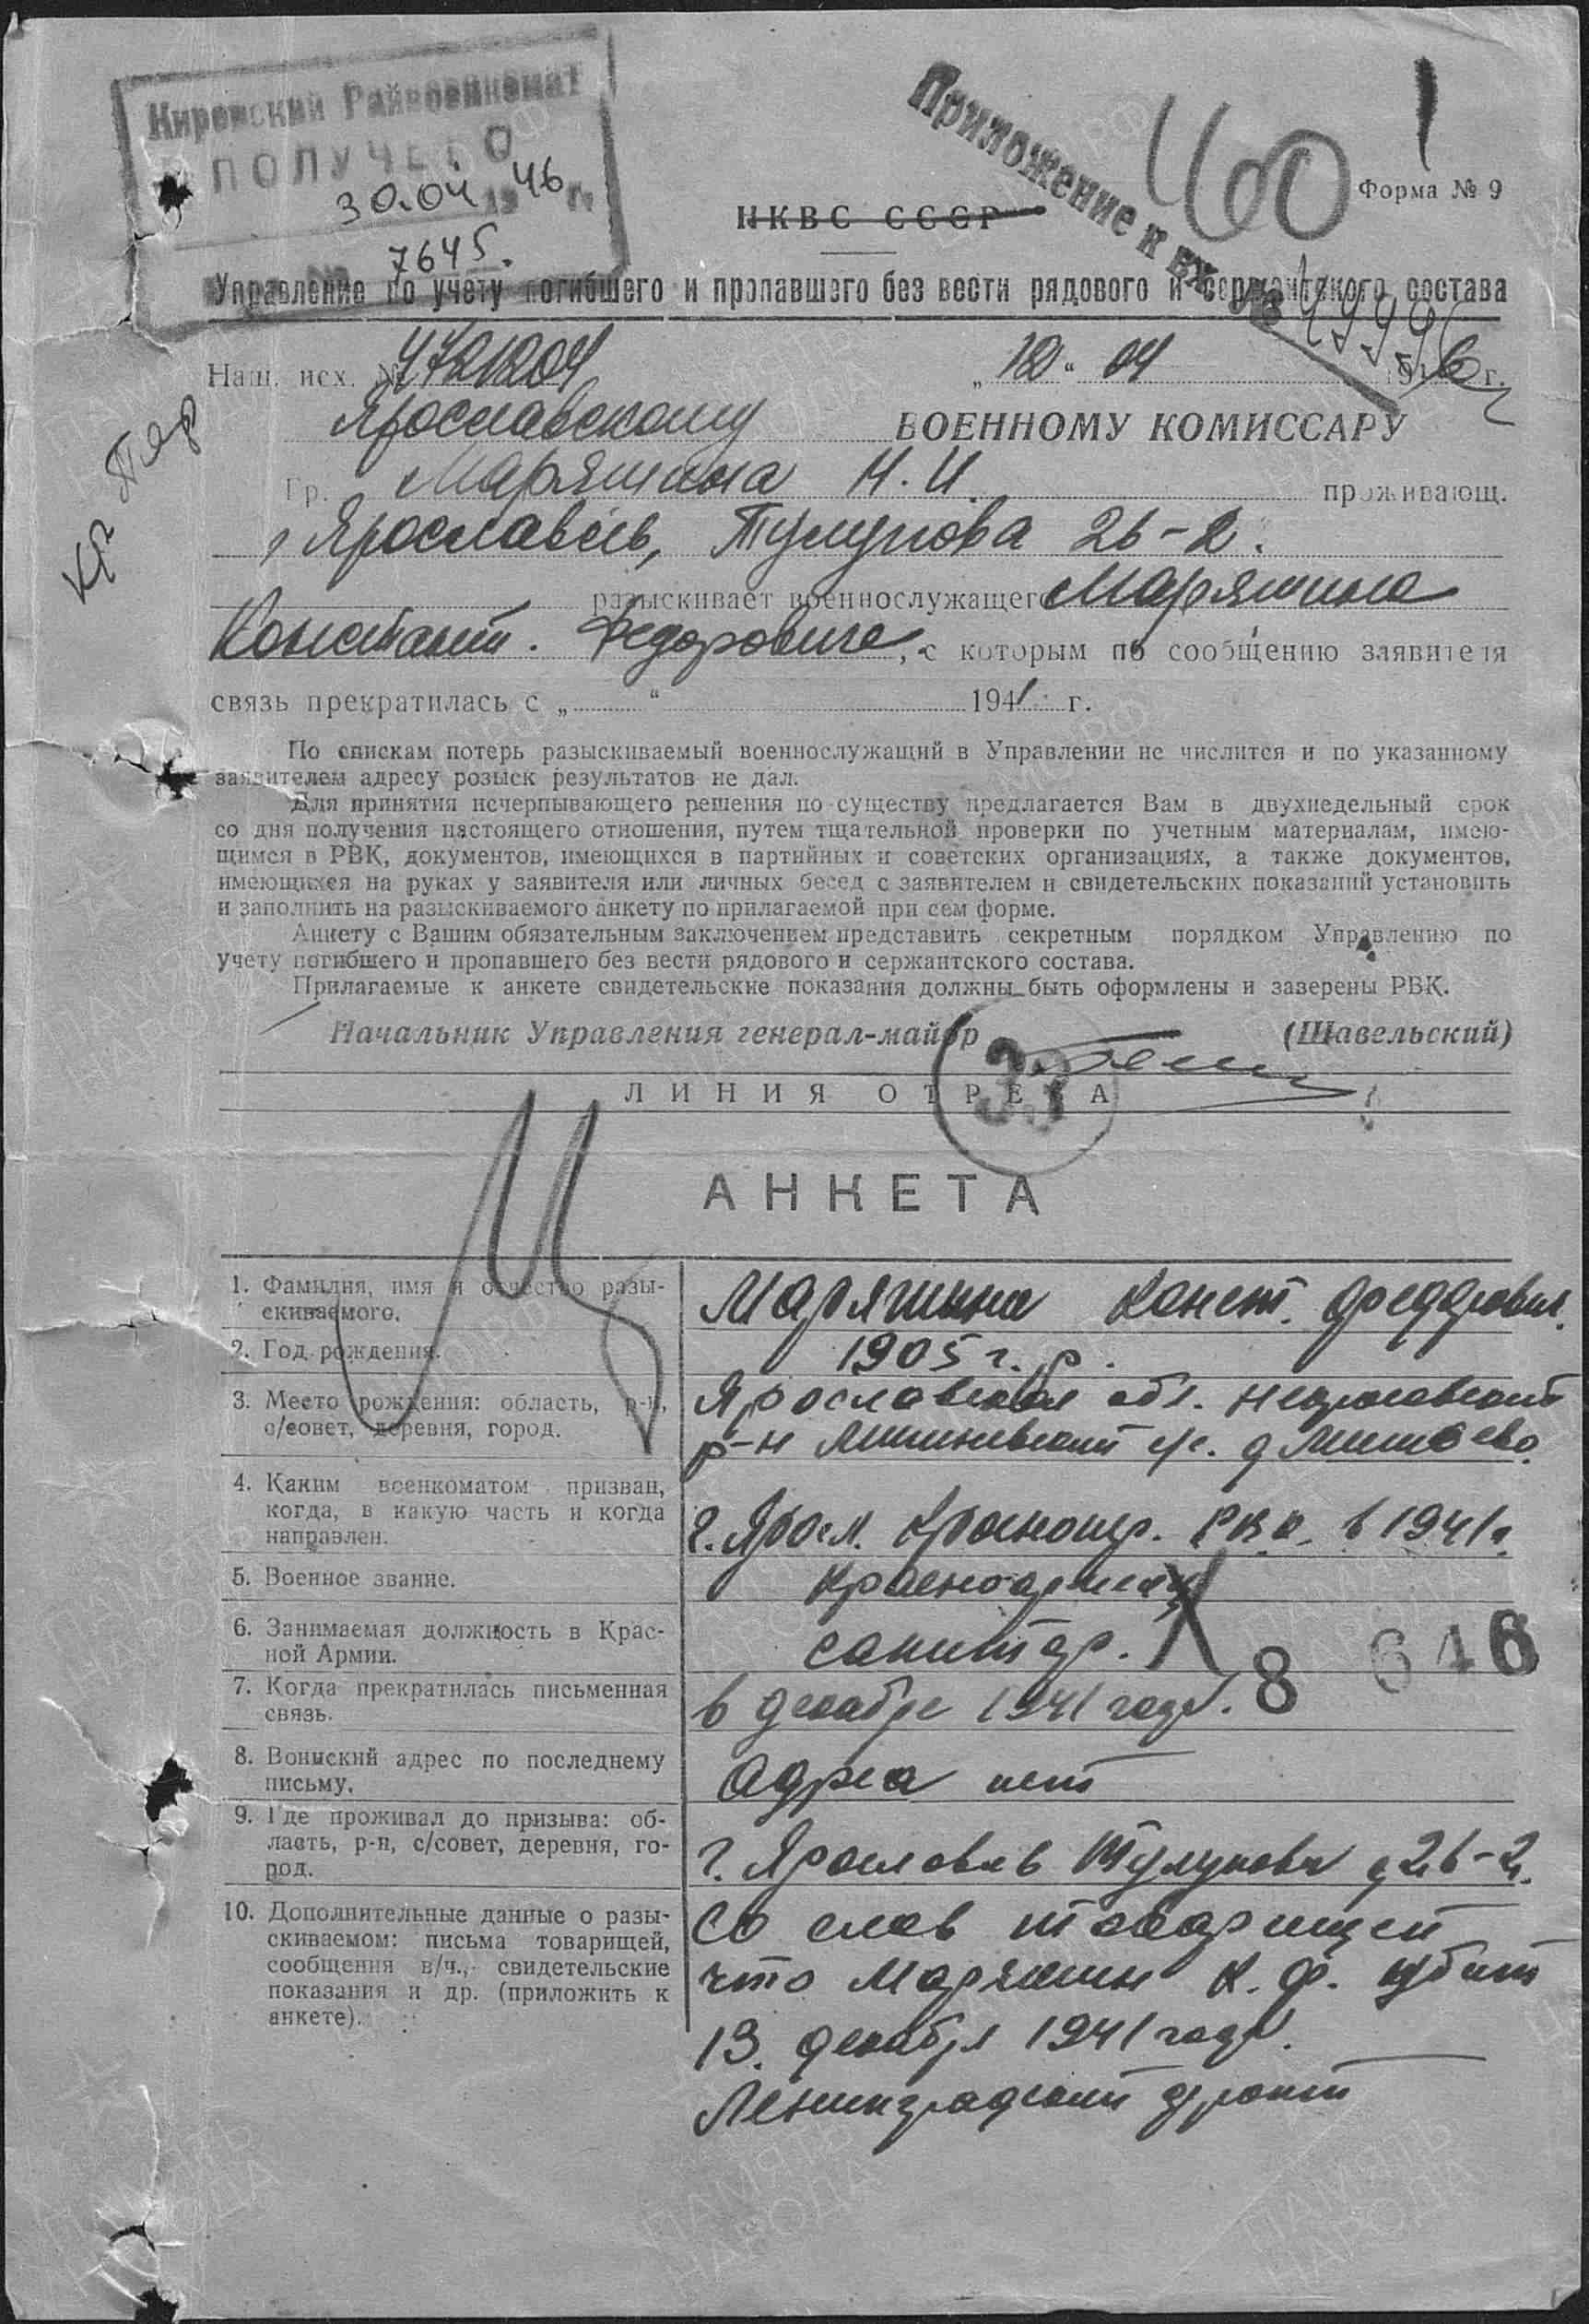 Кировский Райвоенкомат
ПОЛУЧЕНО
30.04 1946 г.
№ 7645.
Приложение к вх. №
400
1
Форма № 9
НКВС СССР
Управление по учету погибшего и пропавшего без вести рядового и сержантского состава
Наш. исх. № 4721204
„12“ 04 1946 г.
Ярославскому ВОЕННОМУ КОМИССАРУ
Гр. Маряшина Н. И. проживающ.
г Ярославль, Тулупова 26-2.
разыскивает военнослужащего Маряшина
Констант. Федоровича, с которым по сообщению заявителя
связь прекратилась с „ “ 1941 г.
По спискам потерь разыскиваемый военнослужащий в Управлении не числится и по указанному
заявителем адресу розыск результатов не дал.
Для принятия исчерпывающего решения по существу предлагается Вам в двухнедельный срок
со дня получения настоящего отношения, путем тщательной проверки по учетным материалам, имею-
щимся в РВК, документов, имеющихся в партийных и советских организациях, а также документов,
имеющихся на руках у заявителя или личных бесед с заявителем и свидетельских показаний установить
и заполнить на разыскиваемого анкету по прилагаемой при сем форме.
Анкету с Вашим обязательным заключением представить секретным порядком Управлению по
учету погибшего и пропавшего без вести рядового и сержантского состава.
Прилагаемые к анкете свидетельские показания должны быть оформлены и заверены РВК.
Начальник Управления генерал-майор (Шавельский)
33
ЛИНИЯ ОТРЕЗА
АНКЕТА
1. Фамилия, имя и отчество разы-
скиваемого.
Маряшина Конст. Федорович.
2. Год рождения.
1905 г. р.
3. Место рождения: область, р-н,
с/совет, деревня, город.
Ярославская обл. Некрасовский
р-н с/с. д
4. Каким военкоматом призван,
когда, в какую часть и когда
направлен.
г. Яросл. Краснопер. РВК. в 1941 г.
5. Военное звание.
красноармеец
6. Занимаемая должность в Крас-
ной Армии.
санитар.
8 646
7. Когда прекратилась письменная
связь.
в декабре 1941 года.
8. Воинский адрес по последнему
письму.
Адреса нет
9. Где проживал до призыва: об-
ласть, р-н, с/совет, деревня, го-
род.
г. Ярославль Тулупова д 26-2.
10. Дополнительные данные о разы-
скиваемом: письма товарищей,
сообщения в/ч., свидетельские
показания и др. (приложить к
анкете).
Со слов товарищей
что Маряшин К. Ф. убит
13. декабря 1941 года.
Ленинградский фронт